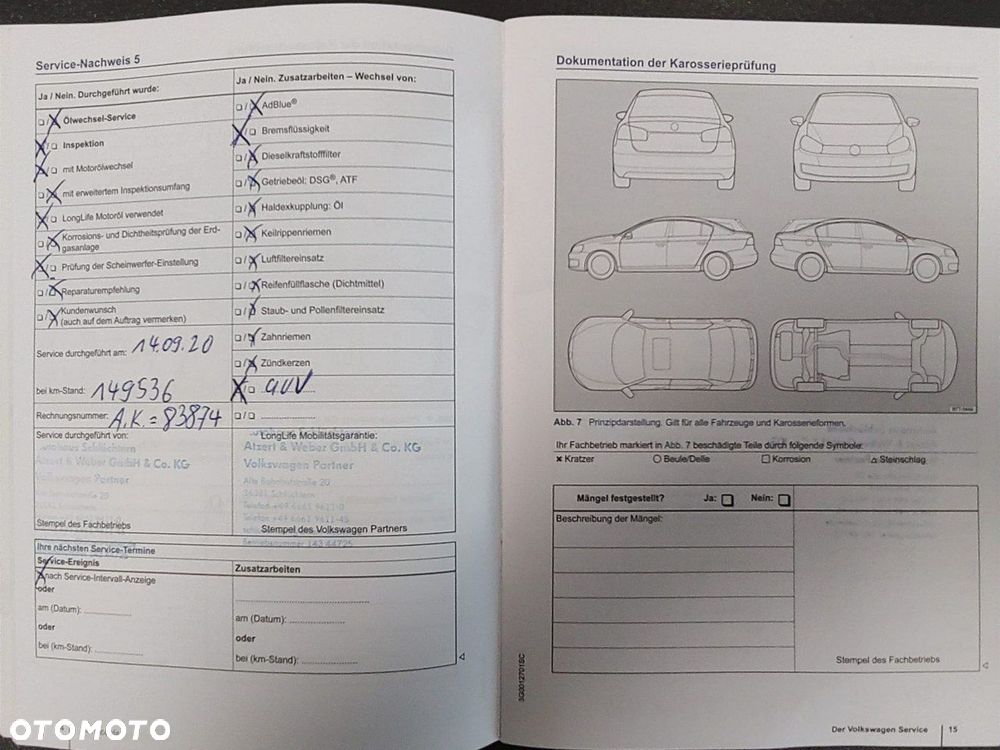 Service-Nachweis 5
Ja / Nein. Durchgeführt wurde:
Ölwechsel-Service
Inspektion
mit Motorölwechsel
mit erweitertem Inspektionsumfang
LongLife Motoröl verwendet
Korrosions- und Dichtheitsprüfung der Erd-
gasanlage
Prüfung der Scheinwerfer-Einstellung
Reparaturempfehlung
Kundenwunsch
(auch auf dem Auftrag vermerken)
Service durchgeführt am: 14.09.20
bei km-Stand: 149536
Rechnungsnummer: A.K. = 83874
Service durchgeführt von:
Alzert & Weber GmbH & Co. KG
Volkswagen Partner
Stempel des Fachbetriebs
Ja / Nein. Zusatzarbeiten – Wechsel von:
AdBlue®
Bremsflüssigkeit
Dieselkraftstofffilter
Getriebeöl: DSG®, ATF
Haldexkupplung: Öl
Keilrippenriemen
Luftfiltereinsatz
Reifenfüllflasche (Dichtmittel)
Staub- und Pollenfiltereinsatz
Zahnriemen
Zündkerzen
LongLife Mobilitätsgarantie:
Alzert & Weber GmbH & Co. KG
Volkswagen Partner
Alte Bahnhofstraße 20
36381 Schlüchtern
Telefon +49 6661 9611-0
Telefax +49 6661 9611-45
Stempel des Volkswagen Partners
Betriebsnummer 143 44725
Ihre nächsten Service-Termine
Service-Ereignis
nach Service-Intervall-Anzeige
oder
am (Datum):
oder
bei (km-Stand):
Zusatzarbeiten
am (Datum):
oder
bei (km-Stand):
Dokumentation der Karosserieprüfung
Abb. 7 Prinzipdarstellung. Gilt für alle Fahrzeuge und Karosserieformen.
Ihr Fachbetrieb markiert in Abb. 7 beschädigte Teile durch folgende Symbole:
Kratzer Beule/Delle Korrosion Steinschlag
Mängel festgestellt? Ja: Nein:
Beschreibung der Mängel:
Stempel des Fachbetriebs
3G0012701SC
Der Volkswagen Service 15
OTOMOTO